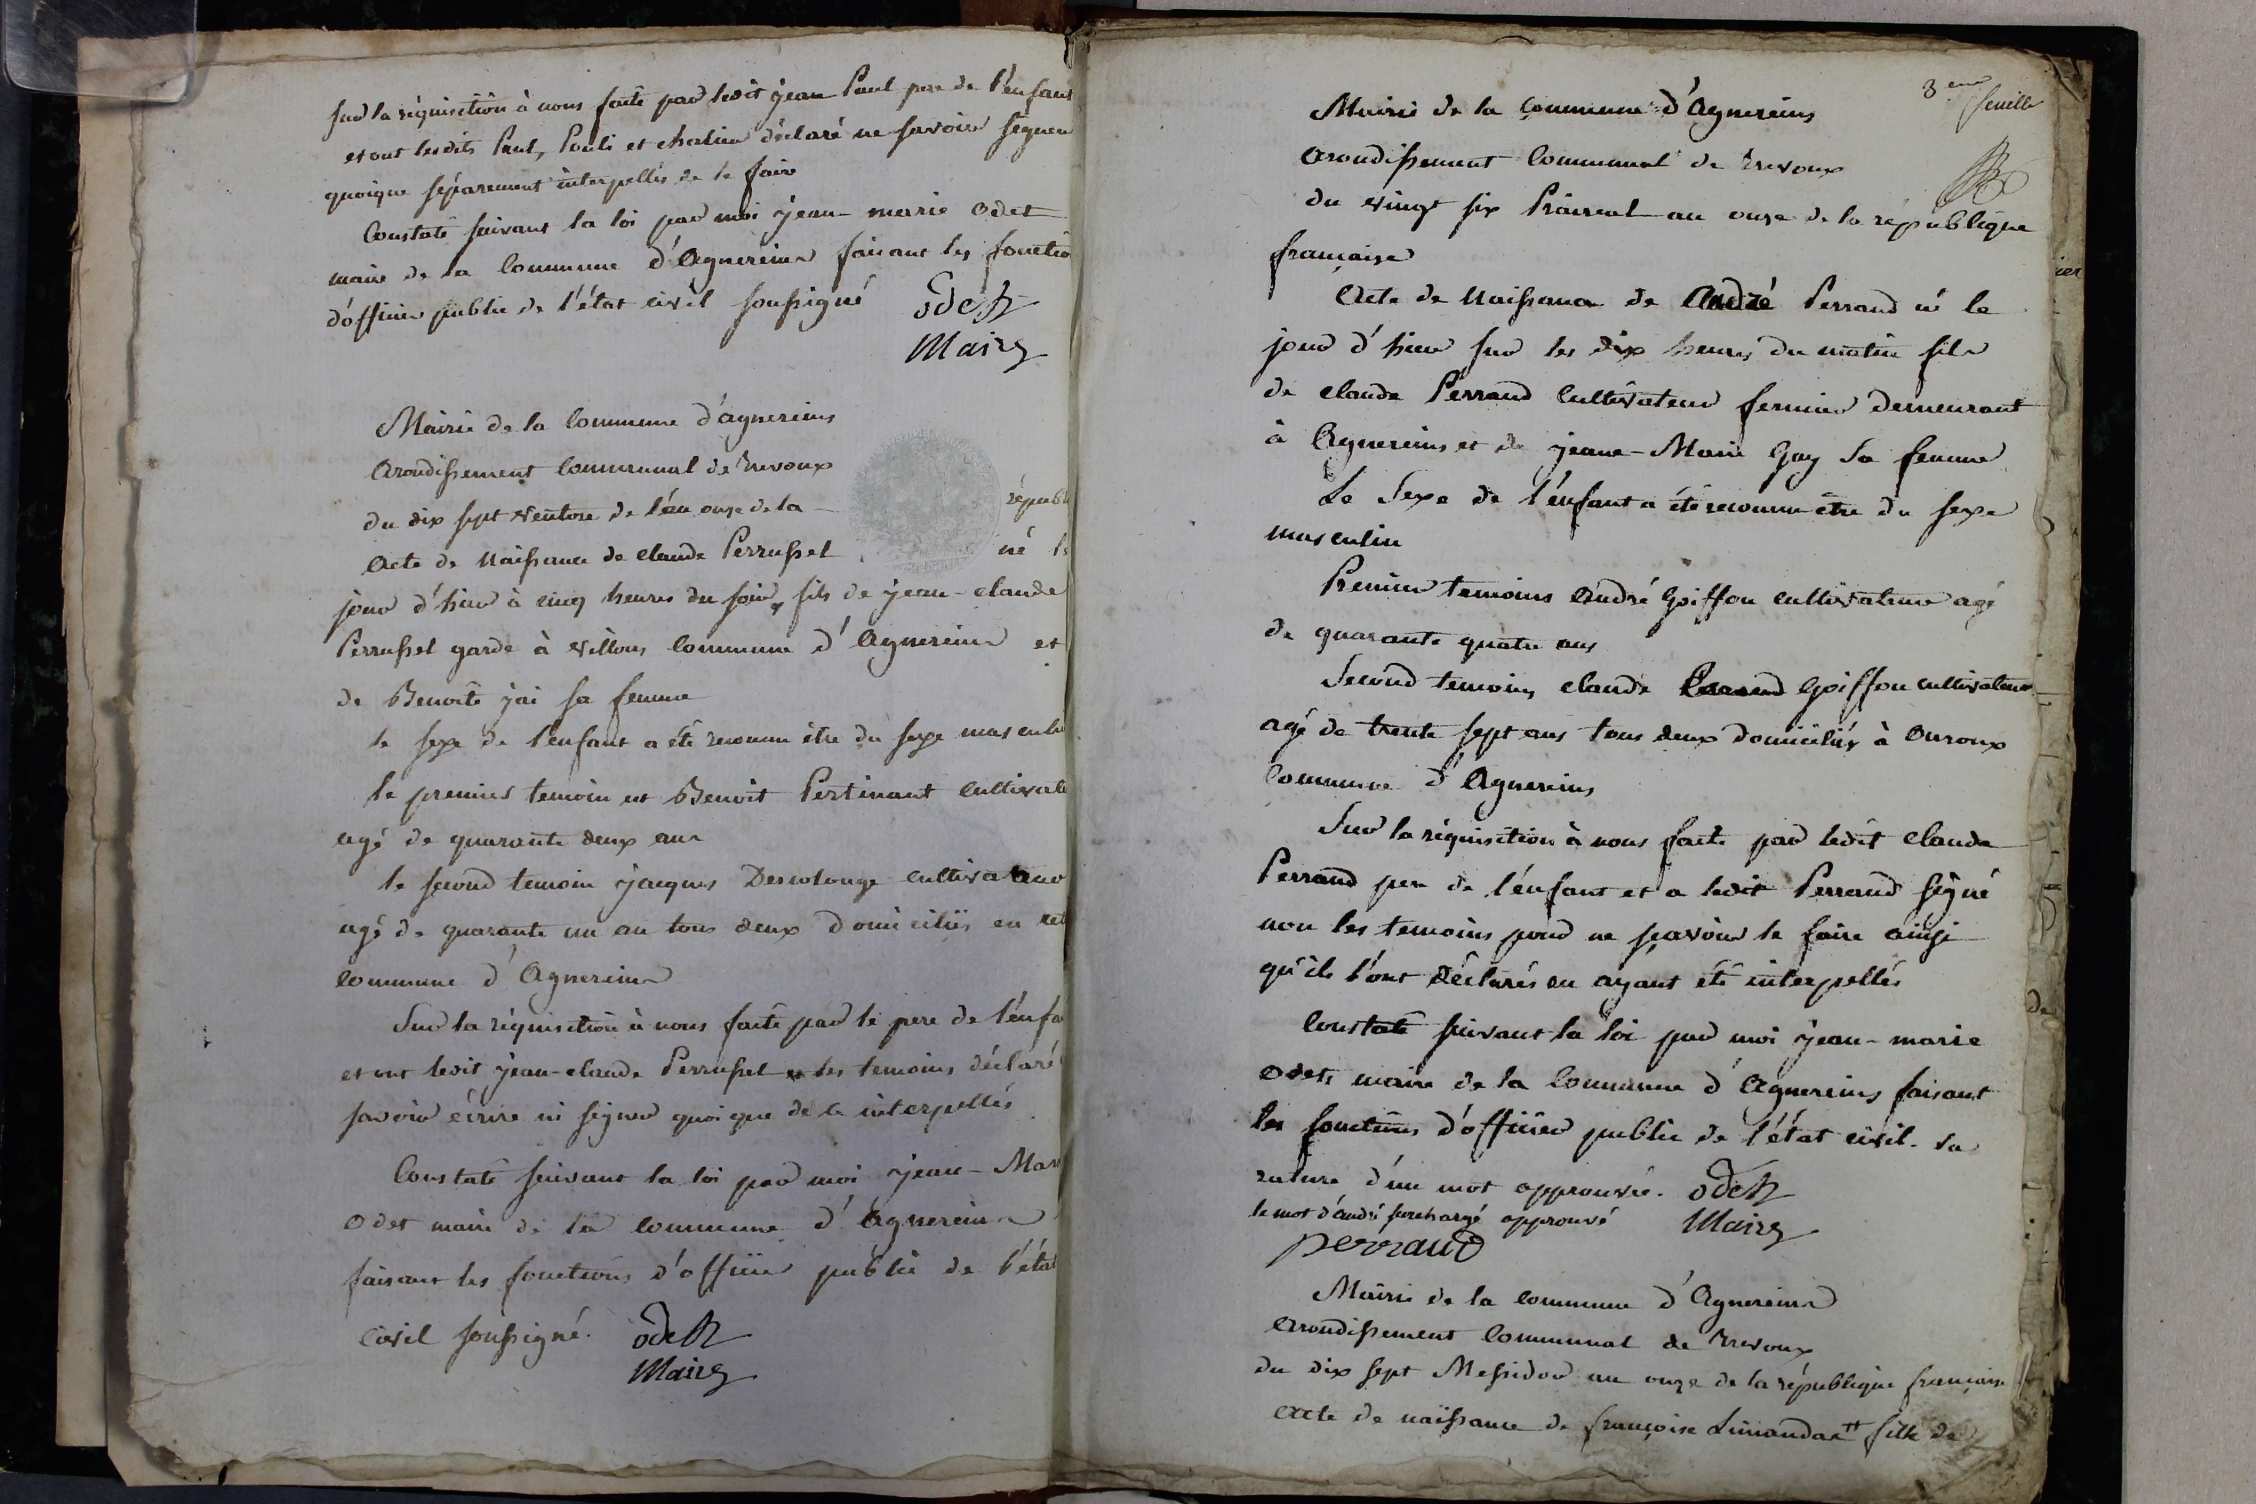 Sur la réquisition à nous faite par ledit jean Paul pere de l'enfant
et ont lesdits Paul, Pouli et chalieu déclaré ne savoir signer
quoique séparement interpellés de le faire
Constaté suivant la loi par moi jean-marie odet
maire de la Commune d'Agnereins faisant les fonctio
d'officier public de l'état civil soussigné odet
Maire
Mairie de la Commune d'agnereins
Arondissement Communal de Trevoux
du dix sept ventose de l'an onze de la républ
Acte de Naissance de claude Perrussel né le
jour d'hier à cinq heures du soir, fils de jean-claude
Perrussel garde à villons Commune d'Agnereins et
de Benoite jai sa femme
le sexe de l'enfant a été reconnu être du sexe masculin
le premier temoin est Benoit Pertinant Cultivate
agé de quarante deux ans
le second temoin jacques Descolonge cultivateur
agé de quarante un an tous deux Domiciliés en cet
commune d'Agnereins
Sur la réquisition à nous faite par le pere de l'enfa
et ont ledit jean-claude Perrussel et les temoins déclaré
savoir écrire ni signer quoique de ce interpellés
Constaté suivant la loi par moi jean-Mar
Odet maire de la commune d'Agnereins
faisant les fonctions d'officier public de l'état
Civil soussigné. odet
Maire
3eme feuille
Mairie de la Commune d'Agnereins
Arondissement Communal de Trevoux
du vingt six Prairial an onze de la république
française
Acte de Naissance de André Perrand né le
jour d'hier sur les dix heures du matin fils
de claude Perrand Cultivateur fermier demeurant
à Agnereins et de jeanne-Marie Gay Sa femme
Le Sexe de l'enfant a été reconnu être du sexe
masculin
Premier temoins André Goiffon cultivateur agé
de quarante quatre ans
Second temoins claude Goiffon cultivateur
agé de trente sept ans tous deux domiciliés à Ouroux
Commune d'Agnereins
Sur la réquisition à nous faite par ledit claude
Perrand pere de l'enfant et a ledit Perrand signé
non les temoins pour ne scavoir le faire ainsi
qu'ils l'ont déclarés en ayant été interpellés
Constaté suivant la loi par moi jean-marie
Odets maire de la Commune d'Agnereins faisant
les fonctions d'officier public de l'état civil. la
rature d'un mot approuvée. odet
le mot d'andré surchargé approuvé Maire
perraud
Mairie de la commune d'Agnereins
Arrondissement Communal de Trevoux
du dix sept Messidor an onze de la république française
Acte de naissance de françoise Limandas fille de